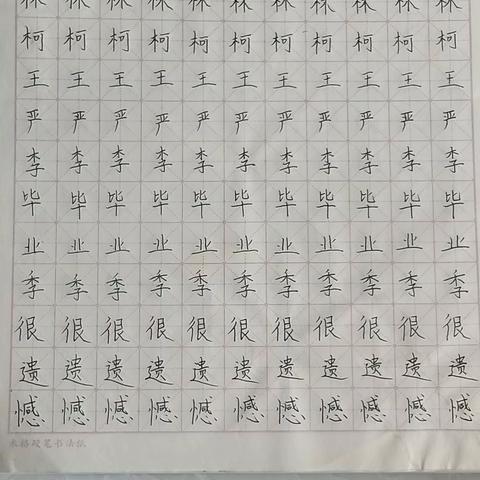 柯柯柯柯柯柯柯柯柯柯柯
王王王王王王王王王王王
严严严严严严严严严严严
李李李李李李李李李李李
毕毕毕毕毕毕毕毕毕毕毕
业业业业业业业业业业业
季季季季季季季季季季季
很很很很很很很很很很很
遗遗遗遗遗遗遗遗遗遗遗
憾憾憾憾憾憾憾憾憾憾憾
米格硬笔书法纸